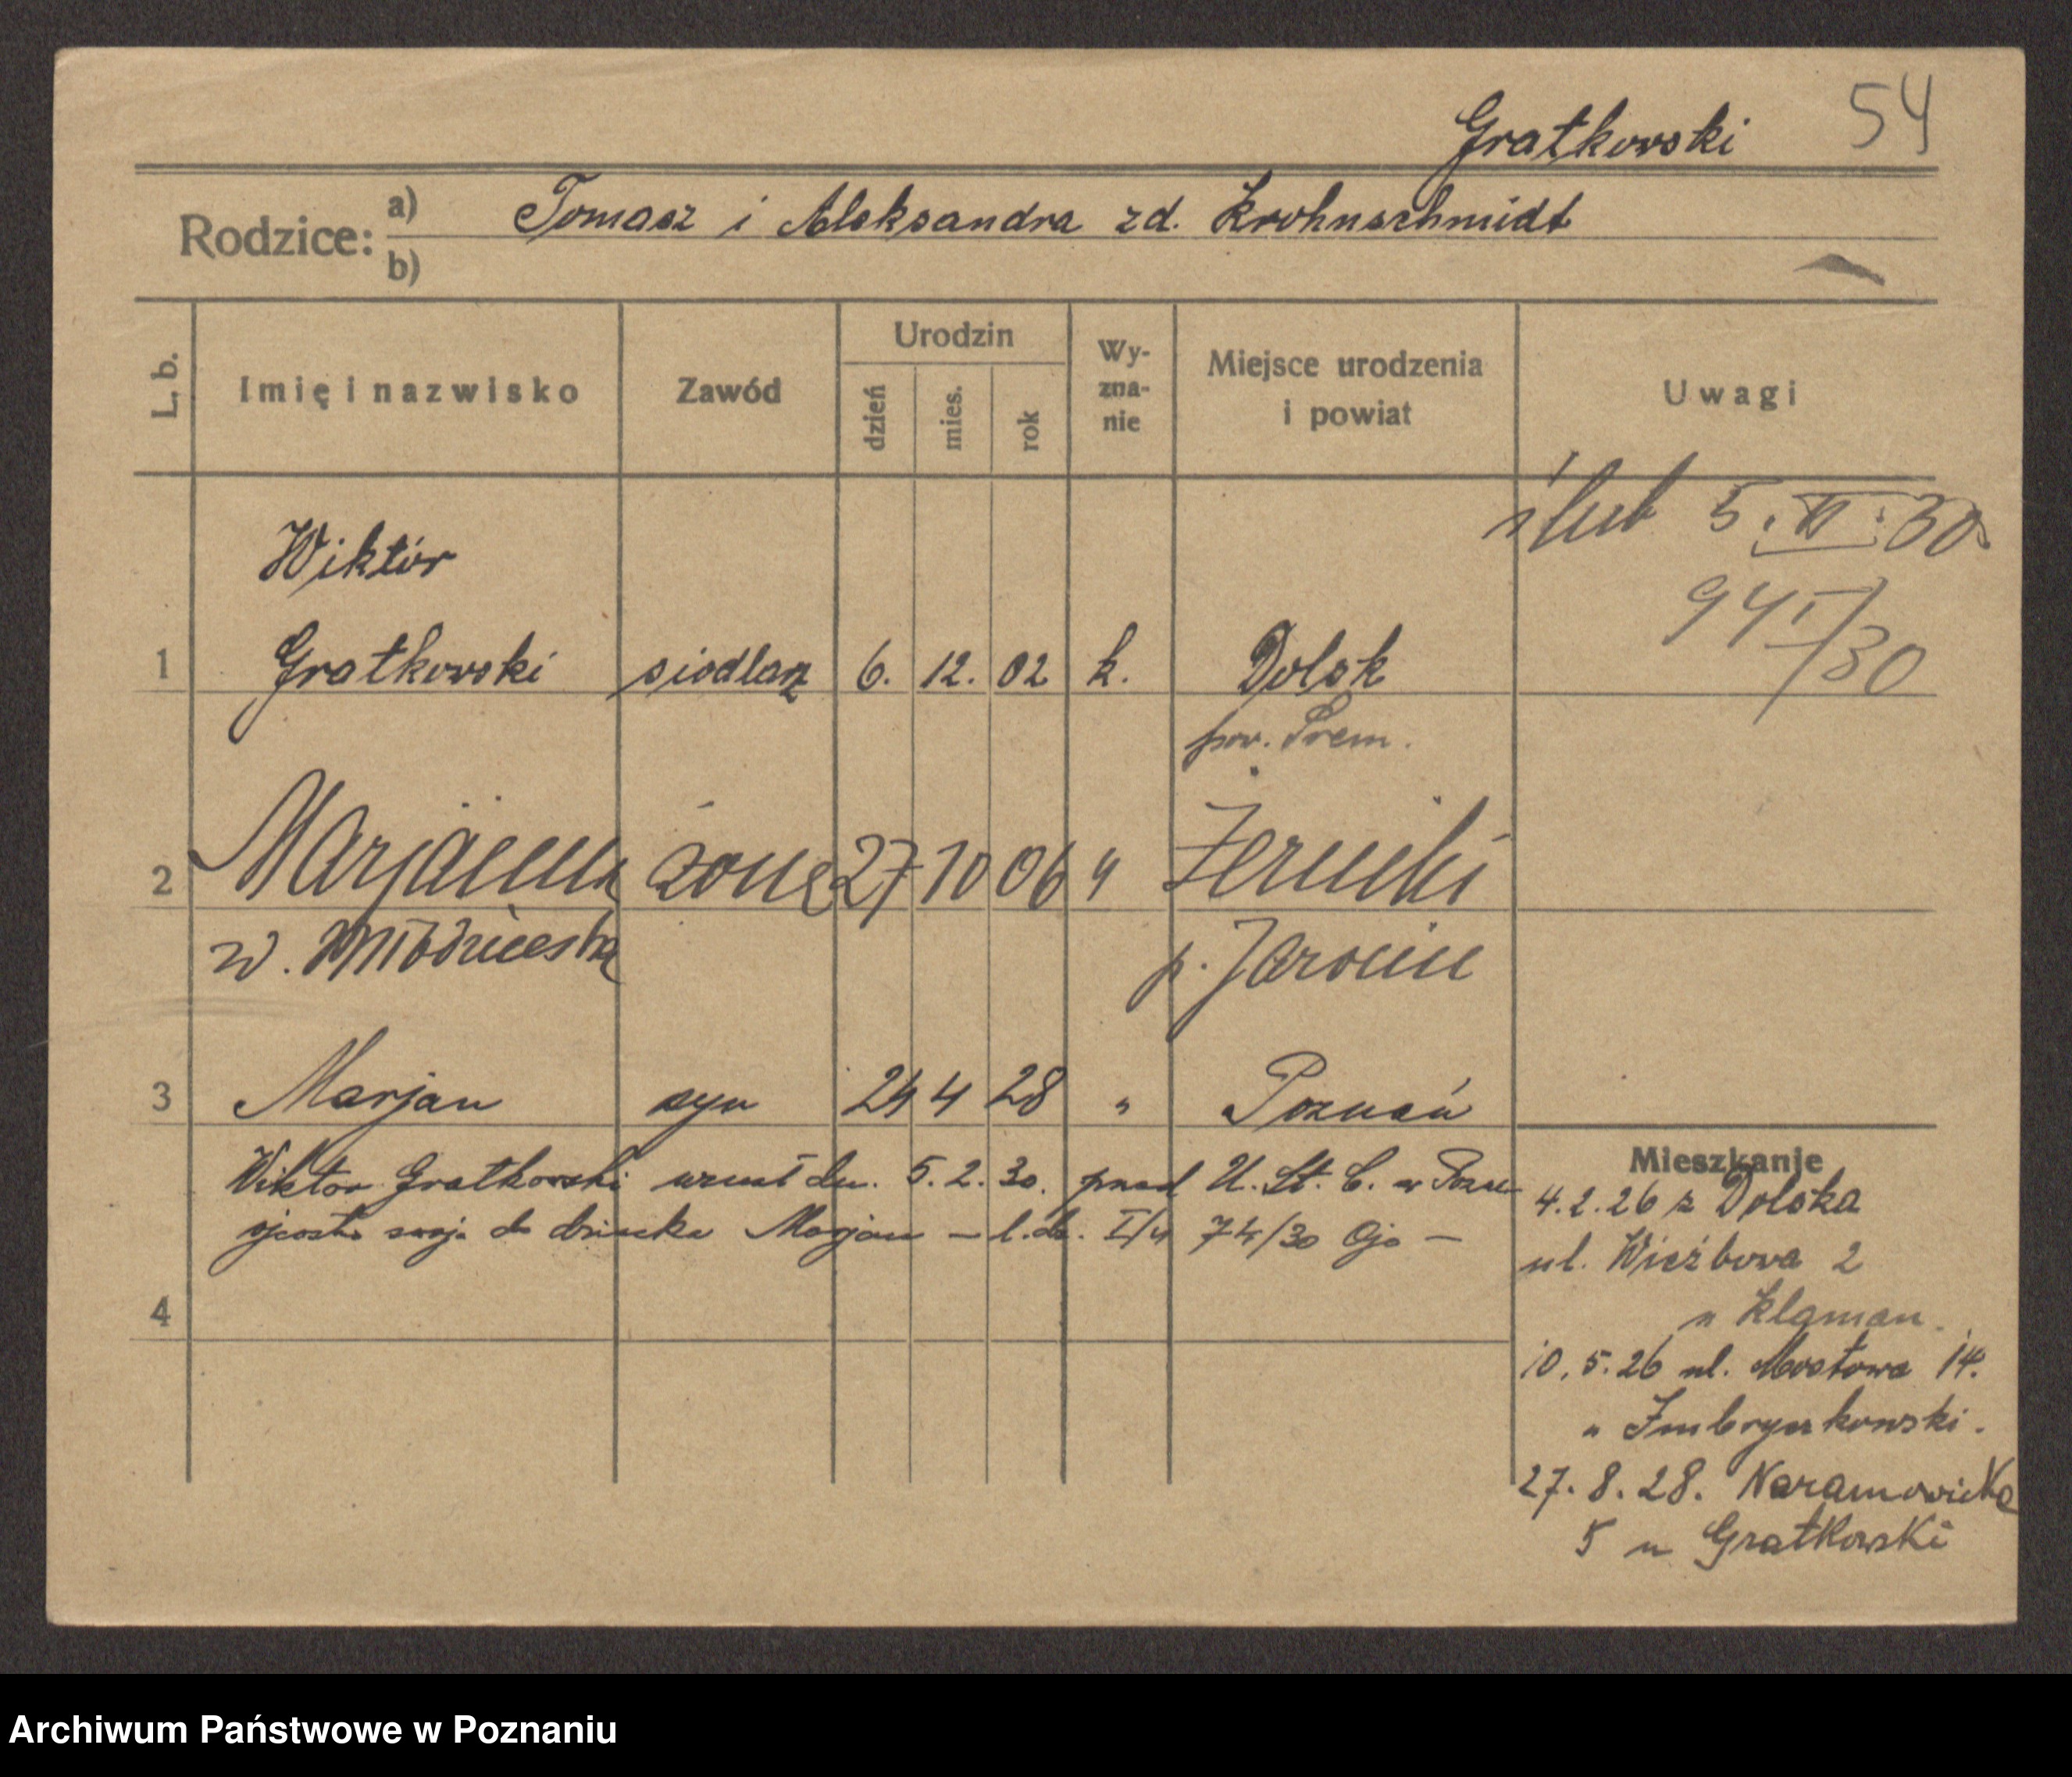 Gratkowski 54
Rodzice: a) Tomasz i Aleksandra zd. Krohnschmidt
b)
L. b. Imię i nazwisko Zawód Urodzin dzień mies. rok Wy-zna-nie Miejsce urodzenia i powiat Uwagi
ślub 5. II. 30
Wiktór
94 I/30
1 Gratkowski siodlarz 6. 12. 02 k. Dolsk
pow. Śrem.
2 Marjanna żona 27 10 06 " Żerniki
p. Jarocin
3 Marjan syn 24 4 28 " Poznań
Mieszkanie
Wiktor Gratkowski uznał dn. 5. 2. 30. przed U. St. C. w Pozn
ojcostwo swoje do dziecka Marjan – l. dz. I/4 74/30
4
4. 2. 26 z Dolska
ul. Wierzbowa 2
u Klaman.
10. 5. 26 ul. Mostowa 14.
" Imbryczkowski.
27. 8. 28. Naramowicka
5 u Gratkowski
Archiwum Państwowe w Poznaniu